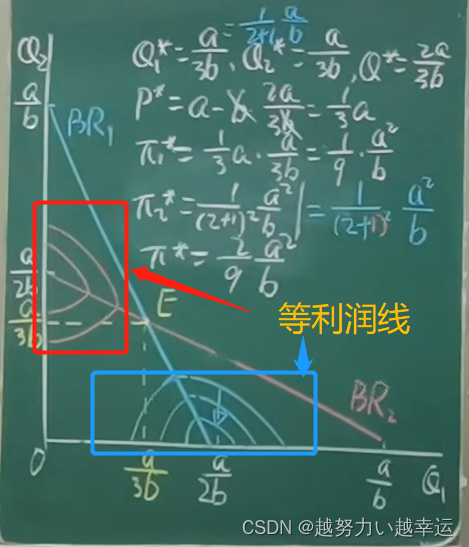 = 1/(2+1) a/b
Q₁* = a/3b, Q₂* = a/3b, Q* = 2a/3b
P* = a - b 2a/3b = 1/3 a
π₁* = 1/3 a · a/3b = 1/9 · a²/b
π₂* = 1/(2+1)² a²/b | = 1/(2+1)² a²/b
π* = 2/9 a²/b
Q₂
a/b
BR₁
a/2b
a/3b
E
等利润线
BR₂
0
a/3b
a/2b
a/b
Q₁
CSDN @越努力い越幸运